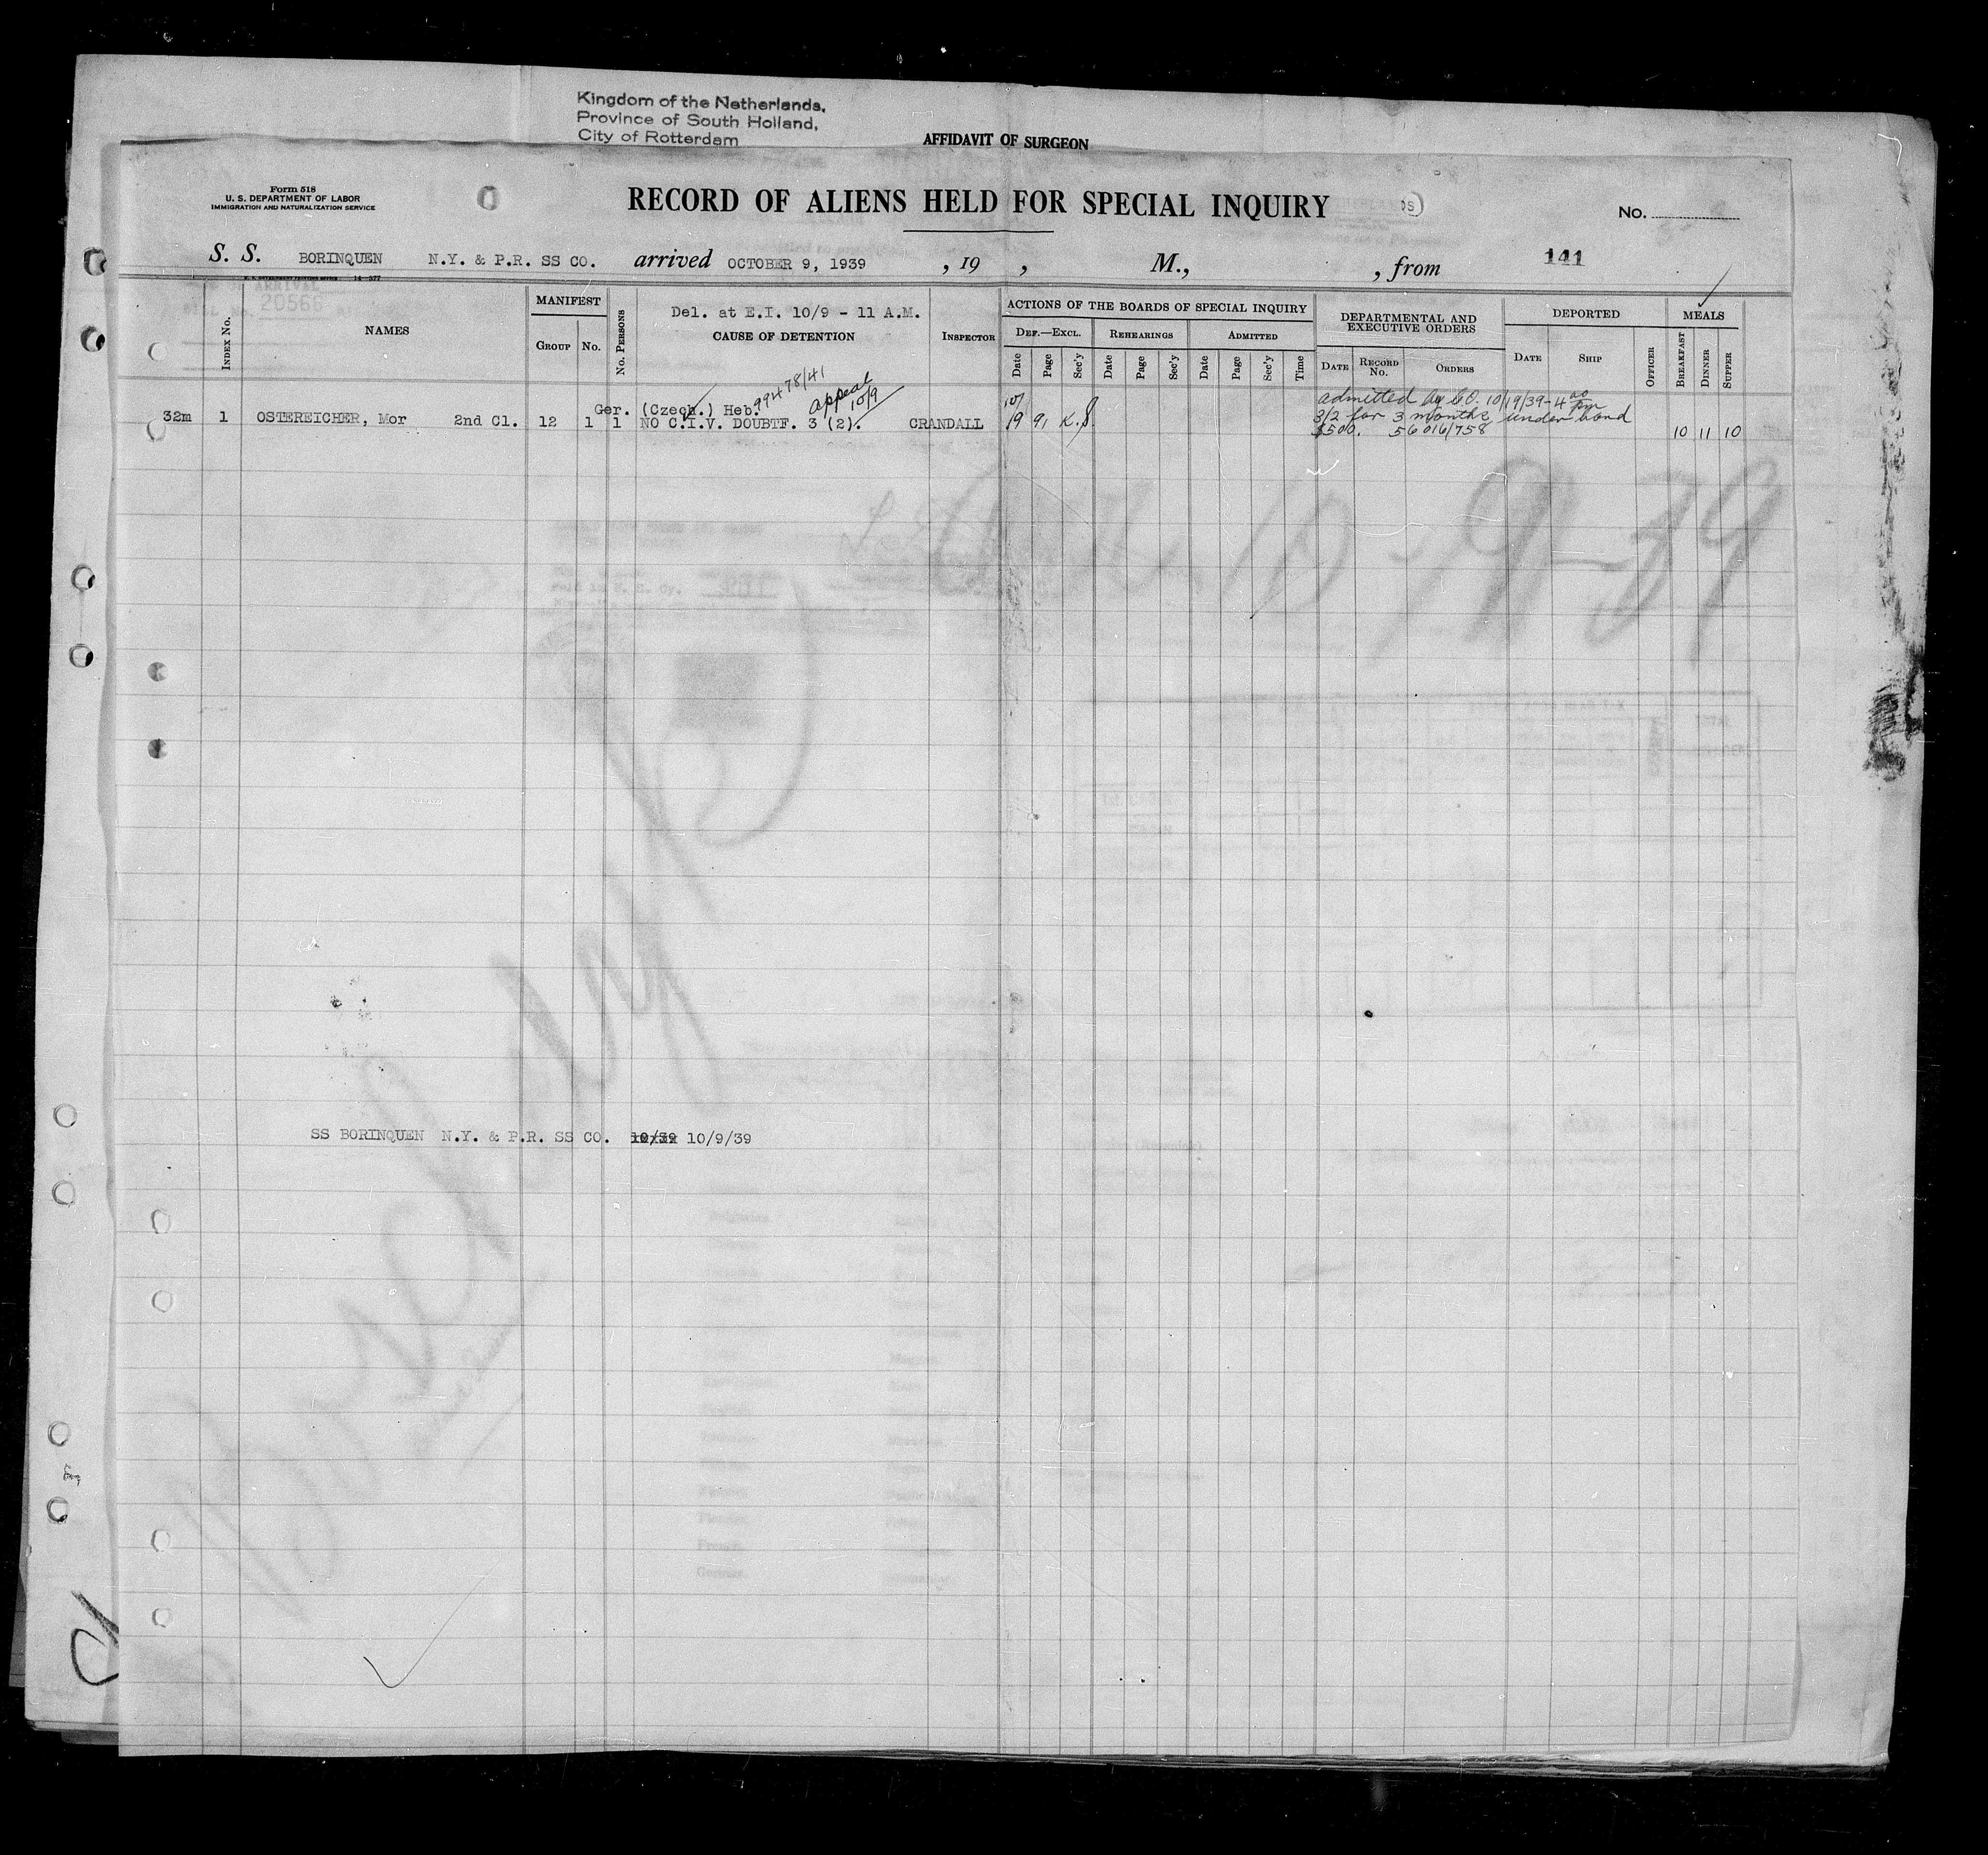 Kingdom of the Netherlands,
Province of South Holland,
City of Rotterdam
AFFIDAVIT OF SURGEON
Form 518
U. S. DEPARTMENT OF LABOR
IMMIGRATION AND NATURALIZATION SERVICE
RECORD OF ALIENS HELD FOR SPECIAL INQUIRY
No.
S. S. BORINQUEN N.Y. & P.R. SS CO. arrived OCTOBER 9, 1939 , 19 , M., , from 141
ARRIVAL
20566
INDEX No.
NAMES
MANIFEST
GROUP
No.
No. PERSONS
Del. at E.I. 10/9 - 11 A.M.
CAUSE OF DETENTION
INSPECTOR
ACTIONS OF THE BOARDS OF SPECIAL INQUIRY
DEF.—EXCL.
REHEARINGS
ADMITTED
Date Page Sec'y Date Page Sec'y Date Page Sec'y Time
DEPARTMENTAL AND
EXECUTIVE ORDERS
DATE
RECORD No.
ORDERS
DEPORTED
DATE
SHIP
OFFICER
MEALS
BREAKFAST
DINNER
SUPPER
99478/41
Appeal
10/9
Ger. (Czech.) Heb.
32m 1 OSTEREICHER, Mor 2nd Cl. 12 1 1 NO C.I.V. DOUBTF. 3 (2). CRANDALL
10/
19 91 K.S.
admitted by C.O. 10/19/39 - 4 00 pm
3/2 for 3 months under bond
$500. 56016/758
10 11 10
10-19-39
SS BORINQUEN N.Y. & P.R. SS CO. 10/39 10/9/39